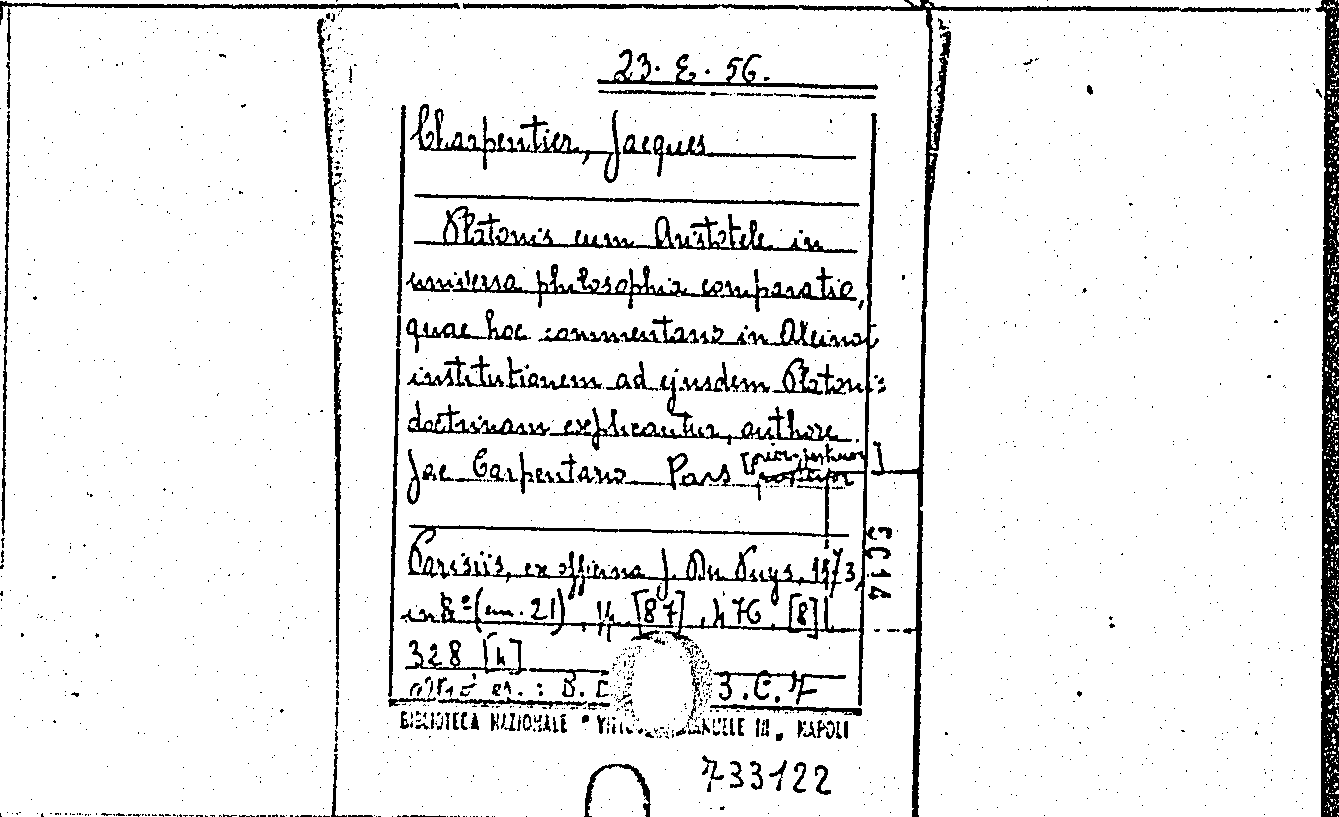 23. E. 56.
Charpentier, Jacques
Platonis cum Aristotele in
universa philosophia comparatio,
quae hoc commentario in Alcinoi
institutionem ad ejusdem Platonis
doctrinam explicantur, authore
Jac. Carpentario. Pars [prior-posterior]
Parisiis, ex officina J. Du Puys, 1573,
in 8º (cm. 21), [87], 476, [8]
328 [4]
altro es.: B. 3.C.7
BIBLIOTECA NAZIONALE " VITT ANUELE III „ NAPOLI
733122
SC14